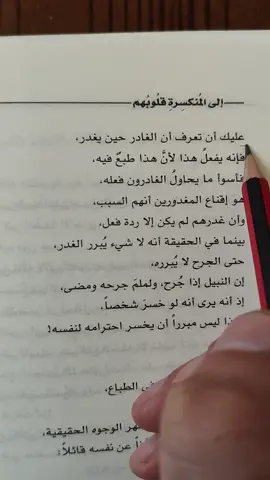 إلى المُنكسِرةِ قلُوبُهم
عليك أن تعرف أن الغادر حين يغدر،
فإنه يفعلُ هذا لأنَّ هذا طبعٌ فيه،
فأسوأ ما يحاولُ الغادرون فعله،
هو إقناع المغدورين أنهم السبب،
وأن غدرهم لم يكن إلا ردة فعل،
بينما في الحقيقة أنه لا شيء يُبرر الغدر،
حتى الجرح لا يُبرره،
إن النبيل إذا جُرح، ولملمَ جرحه ومضى،
إذ أنه يرى أنه لو خسرَ شخصاً،
هذا ليس مبرراً أن يخسر احترامه لنفسه!
الطباع،
الوجوه الحقيقية،
عن نفسه قائلاً: